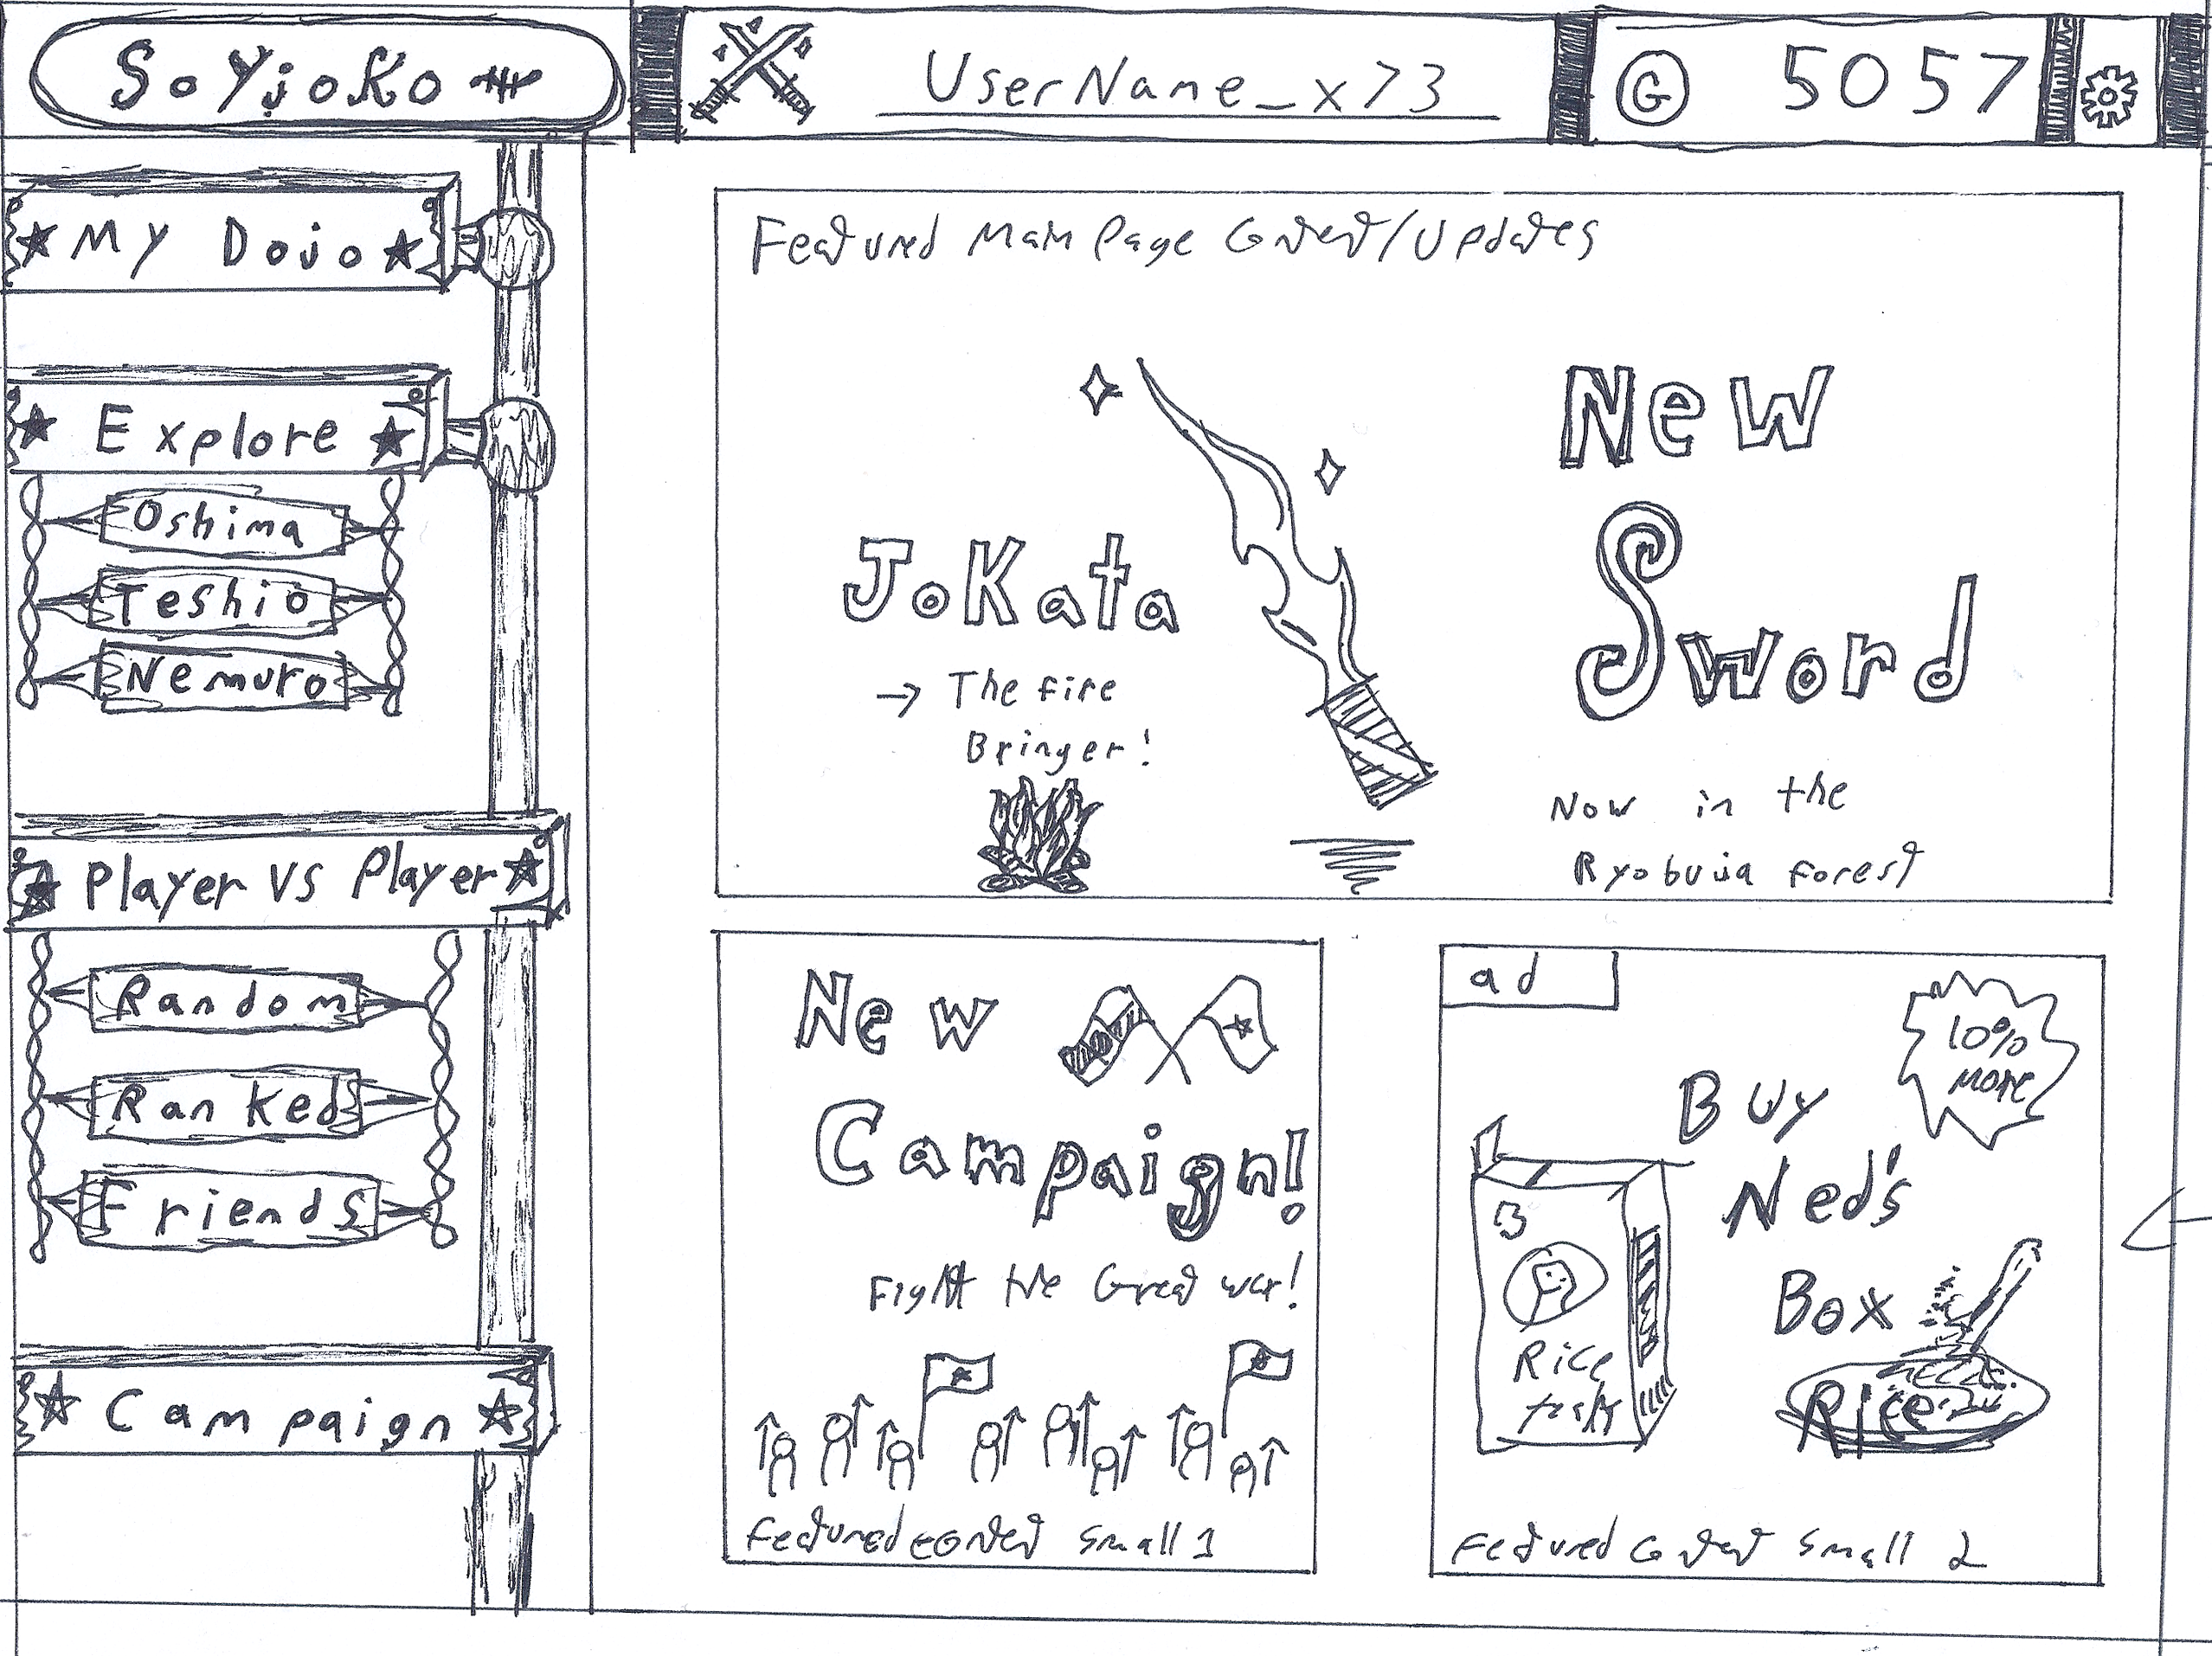 SoYjoKo
UserName_x73
G 5057
My Dojo
Explore
Oshima
Teshio
Nemuro
Player VS Player
Random
Ranked
Friends
Campaign
Featured Main Page Content/Updates
New
Sword
JoKata
→ The fire
Bringer!
Now in the
forest
New
Campaign!
Fight the Great war!
Featured content small 1
ad
10%
more
Buy
Ned's
Box
Rice
Rice
Featured Content Small 2